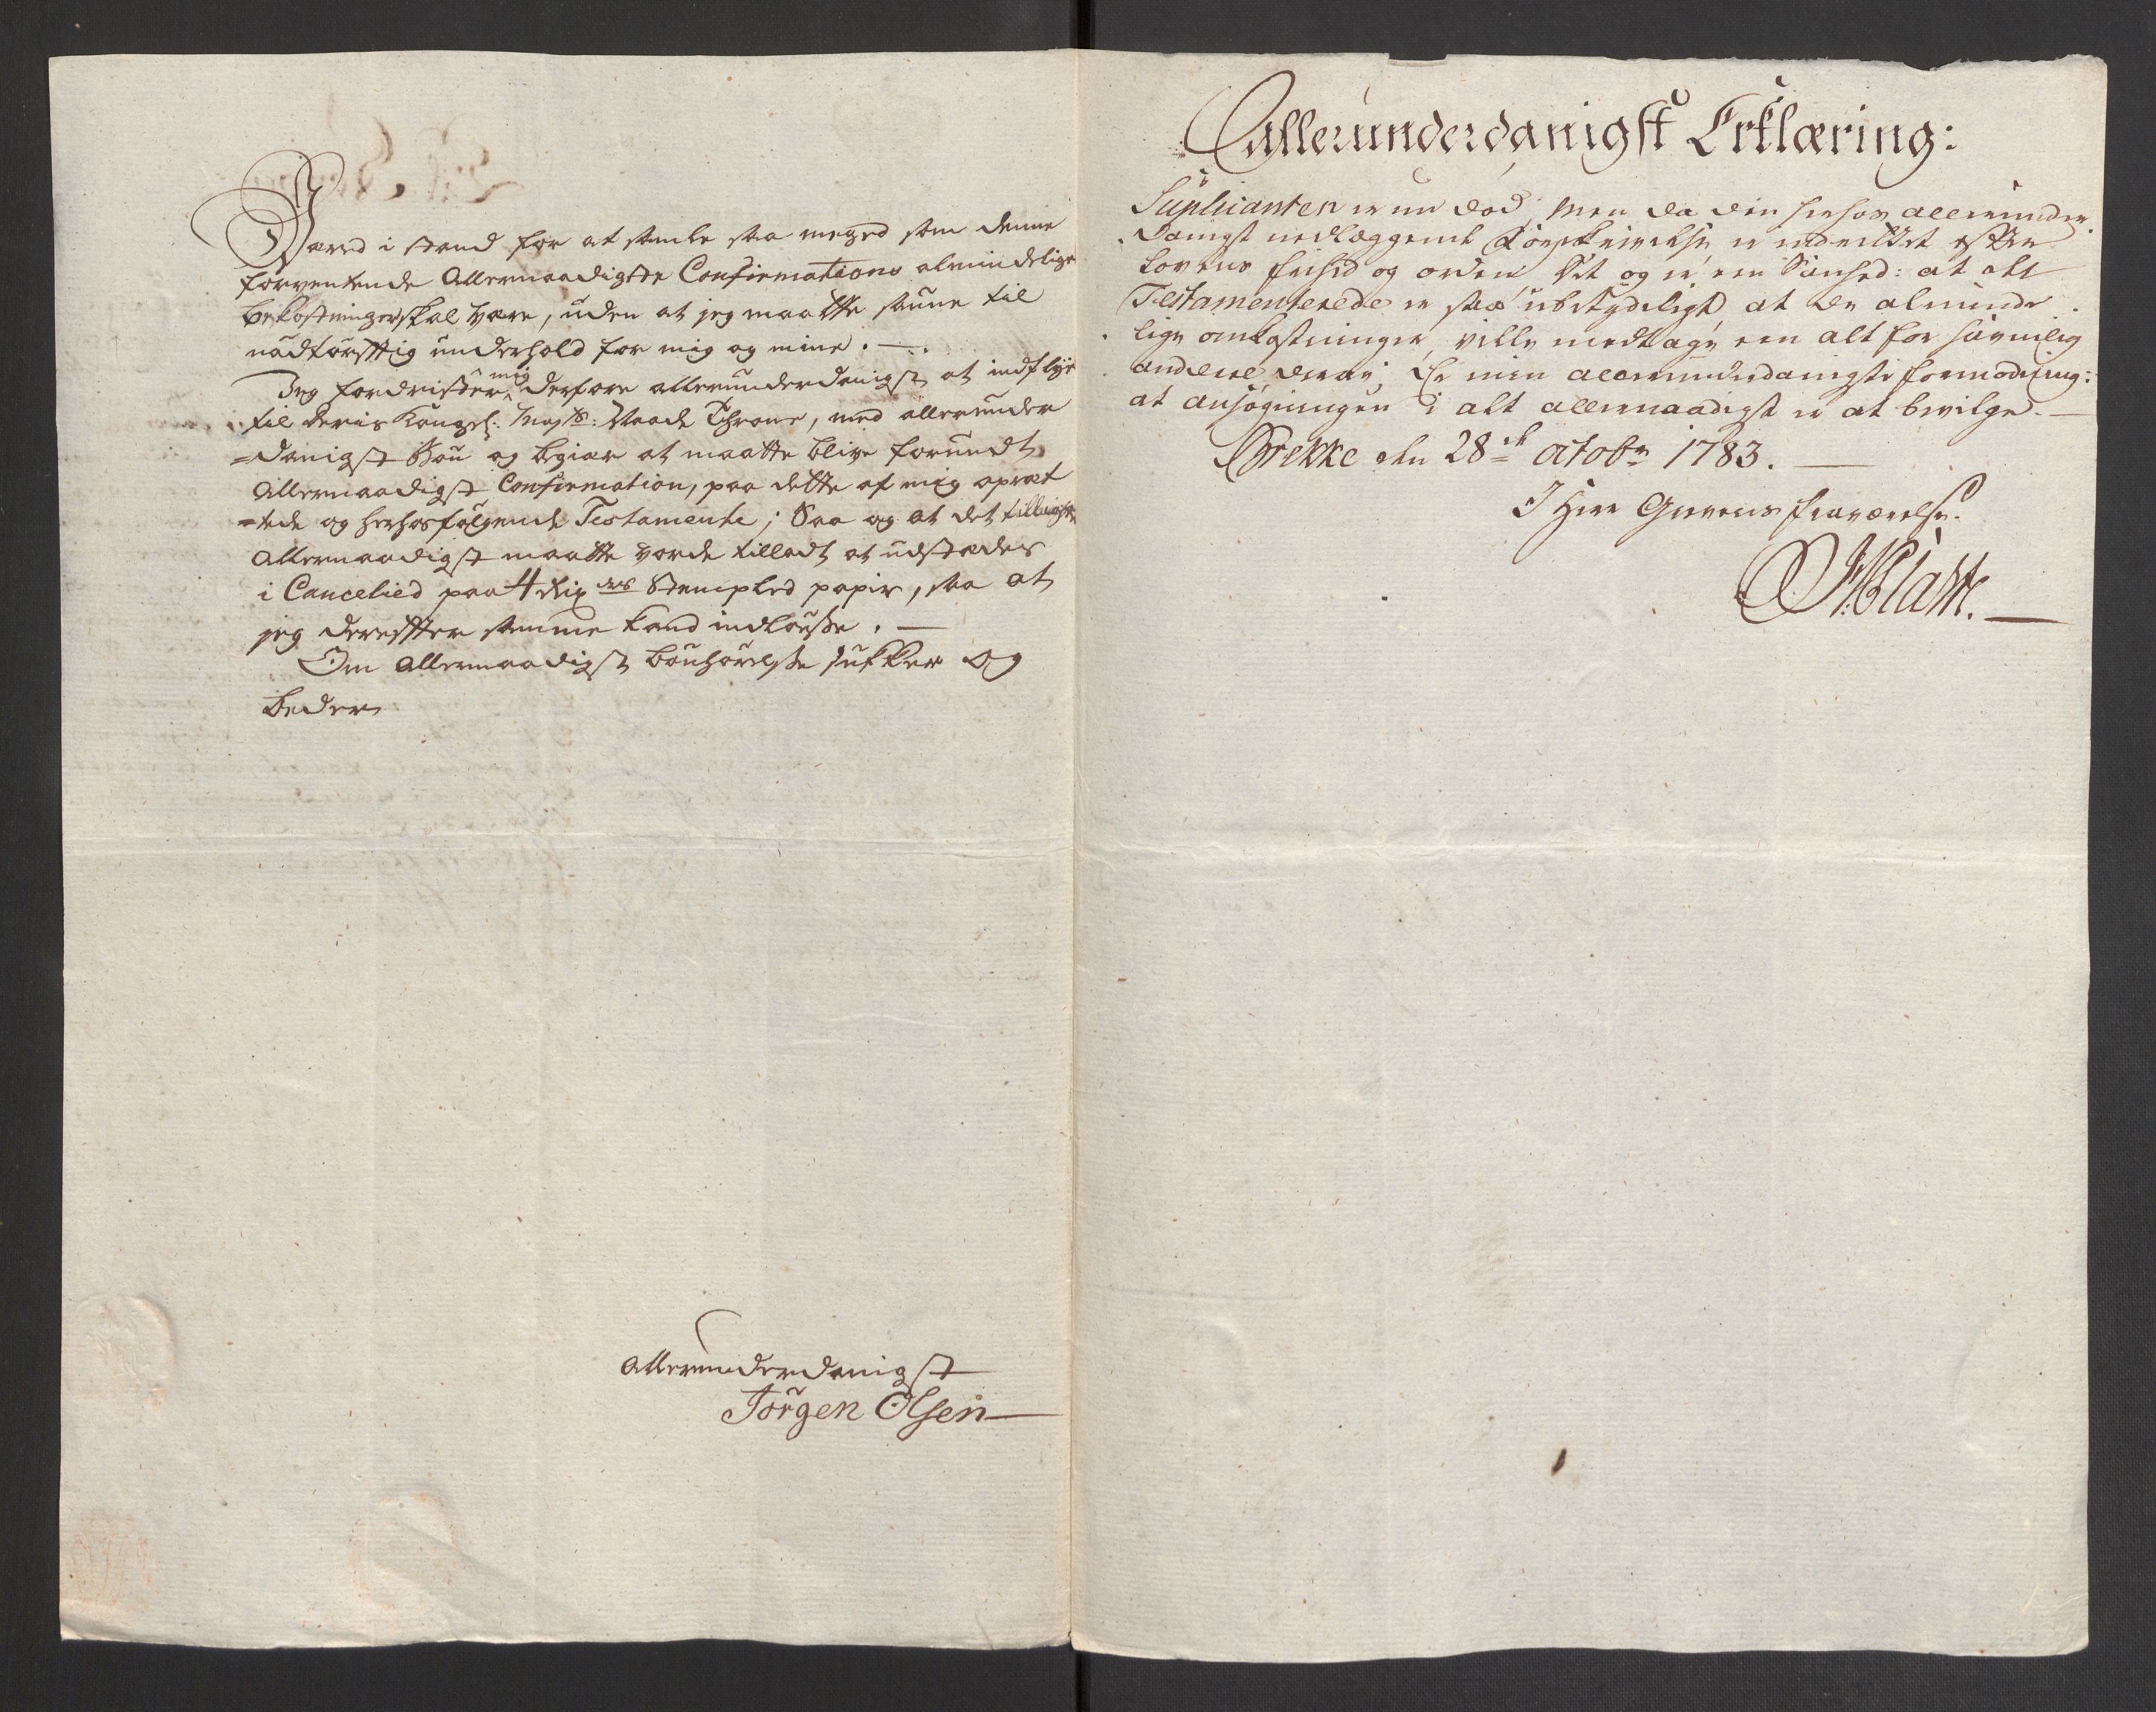 Wæred i stand for at samle saa meged som denne
forventende Allernaadigste Confirmations almindelige
bekostninger skal være, uden at jeg maatte savne til
nødtörfftig underhold for mig og mine. —.
Jeg fordrister mig derfore allerunderdanigst at indflye
til deris Kongel: Mayts: Naade Throne, med allerunder
=danigst Bøn og begiær at maatte blive forundt
Allernaadigst Confirmation, paa dette af mig opræt
=tede og herhosfølgende Testamente; Saa og at det tilligst
Allernaadigst maatte vorde tilladt at udstædes
i Cancelied paa 4 rix dlrs Stempled papir, saa at
jeg derefter samme kand indløsse. —
Om allernaadigst bönhørelsse sukker og
beder
Allerunderdanigst
Jörgen Olsen
Allerunderdanigst Erklæring:
Suplicanten er nu død, Men da den herhos allerunder
danigst nedlæggende er indrettet efter
Lovens forhid og orden, Det og er een Sanhed: at alt
Testamenterede er saa ubetydeligt at de alminde
lige omkostninger, ville medtage een alt for
andeel deraf; Er min allerunderdanigste formodning:
at ansøgningen i alt allernaadigst er at bevilge. —
Brekke den 28de octobr 1783. —
I Herr Grevens fraværelse.